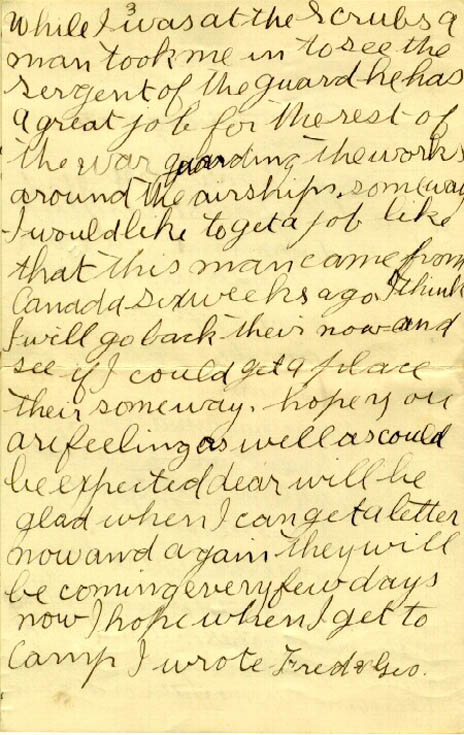 3
While I was at the Scrubs a
man took me in to see the
sergent of the guard he has
a great job for the rest of
the war guarding the works
around the airships. someway
I would like to get a job like
that this man came from
Canada six weeks ago. I think
I will go back their now and
see if I could get a place
their someway. hope you
are feeling as well as could
be expected dear will be
glad when I can get a letter
now and again they will
be coming every few days
now I hope when I get to
Camp I wrote Fred & Geo.